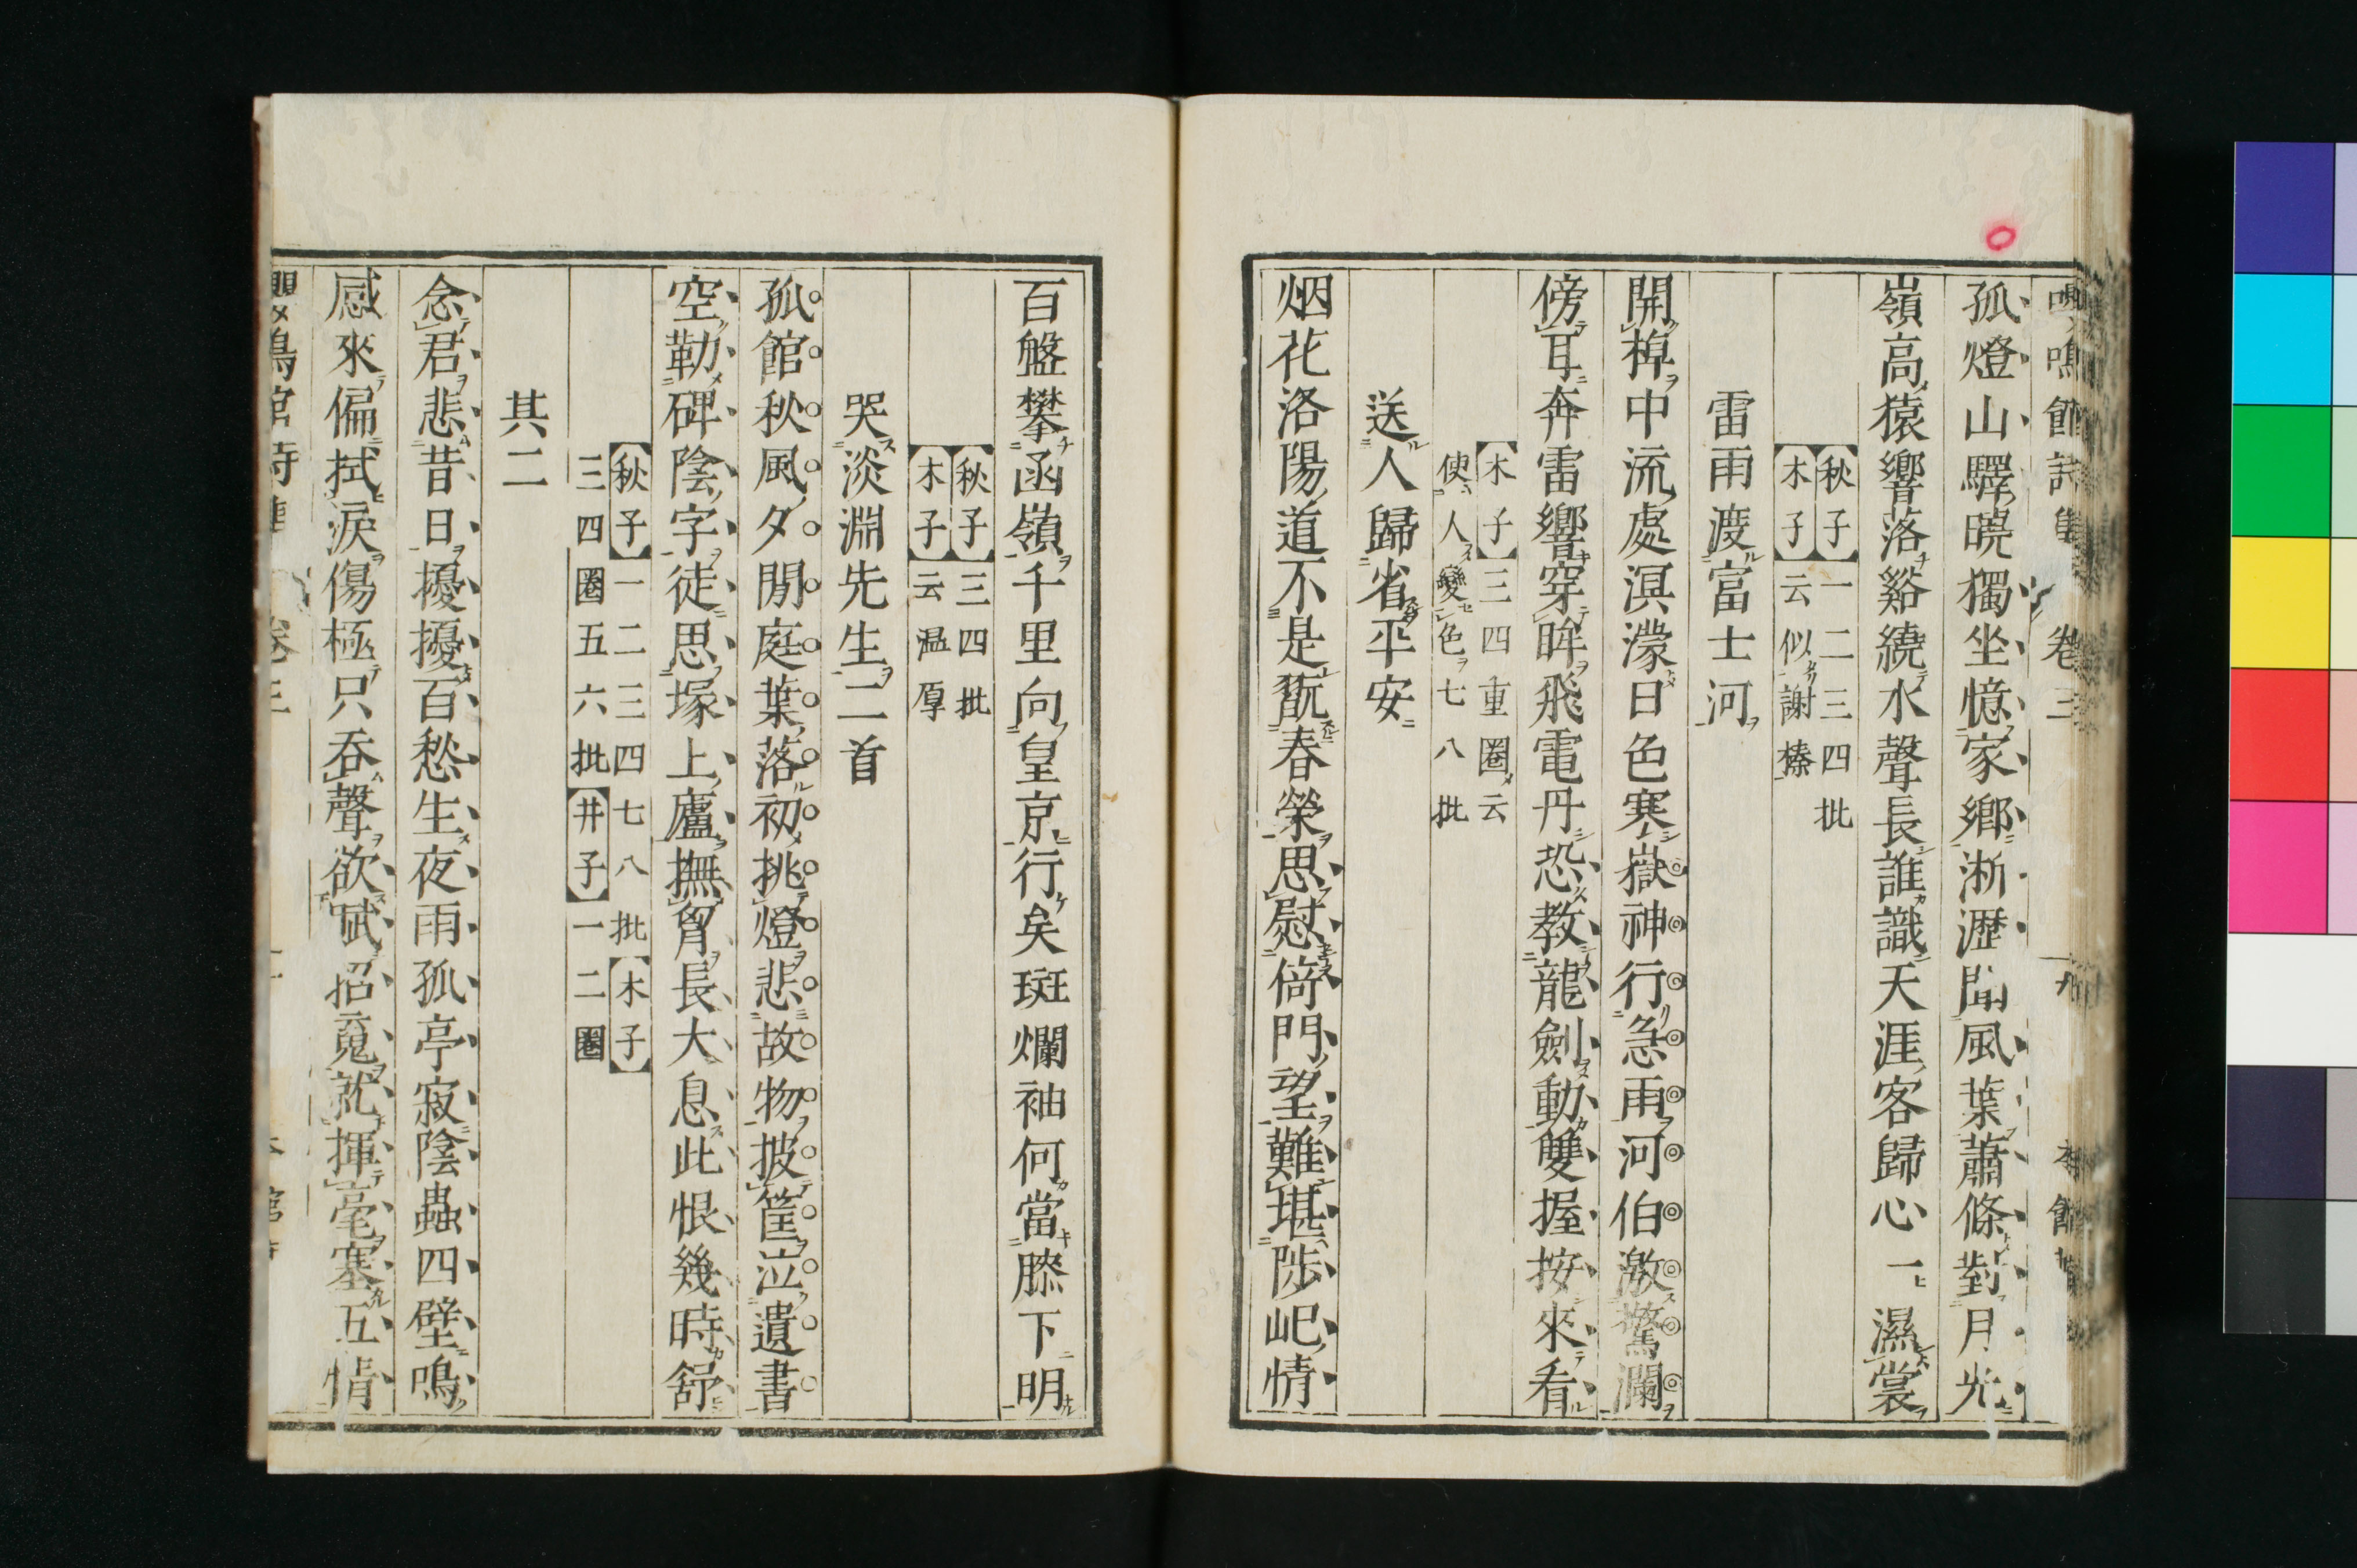 嚶鳴館詩集 卷三 十九 本館藏
孤燈山驛曉獨坐憶家鄉淅瀝聞風葉蕭條對月光
嶺高猿響落谿繞水聲長誰識天涯客歸心一濕裳
【秋子】一二三四批
【木子】云似謝榛
雷雨渡富士河
開棹中流處溟濛日色寒嶽神行急雨河伯激驚瀾
傍耳奔雷響穿眸飛電丹恐教龍劍動雙握按來看
【木子】三四重圈云
使人變色七八批
送人歸省平安
烟花洛陽道不是翫春榮思慰倚門望難堪陟屺情
百盤攀函嶺千里向皇京行矣斑爛袖何當膝下明
【秋子】三四批
【木子】云温厚
哭淡淵先生二首
孤館秋風夕閒庭葉落初挑燈悲故物披筐泣遺書
空勒碑陰字徒思塚上廬撫胷長大息此恨幾時舒
【秋子】一二三四七八批【木子】
三四圈五六批【井子】一二圈
其二
念君悲昔日擾擾百愁生夜雨孤亭寂陰蟲四壁鳴
感來偏拭淚傷極只吞聲欲賦招䰟就揮毫塞五情
嚶鳴館詩集 卷三